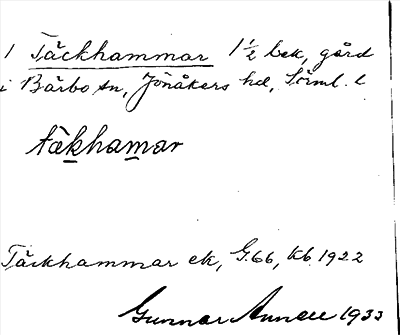 1 Täckhammar 1½ bek, gård
i Bärbo sn, Jönåkers hd, Sörml. l
täkhamar
Täckhammar ek, G.66, Kb 1922
Gunnar 1933